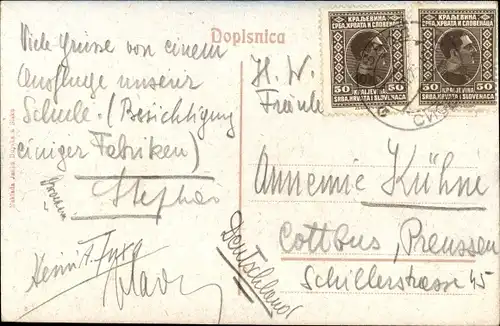 Viele Grüsse von einem
Ausfluge unserer
Schule. (Besichtigung
einiger Fabriken)
Stephan
Dopisnica
H. W.
Fräulein
Annemie Kühne
Cottbus, Preussen
Schillerstrasse 45
Deutschland
КРАЉЕВИНА
СРБА, ХРВАТА И СЛОВЕНАЦА
50 50
KRALJEVINA
SRBA, HRVATA I SLOVENACA
КРАЉЕВИНА
СРБА, ХРВАТА И СЛОВЕНАЦА
50 50
KRALJEVINA
SRBA, HRVATA I SLOVENACA